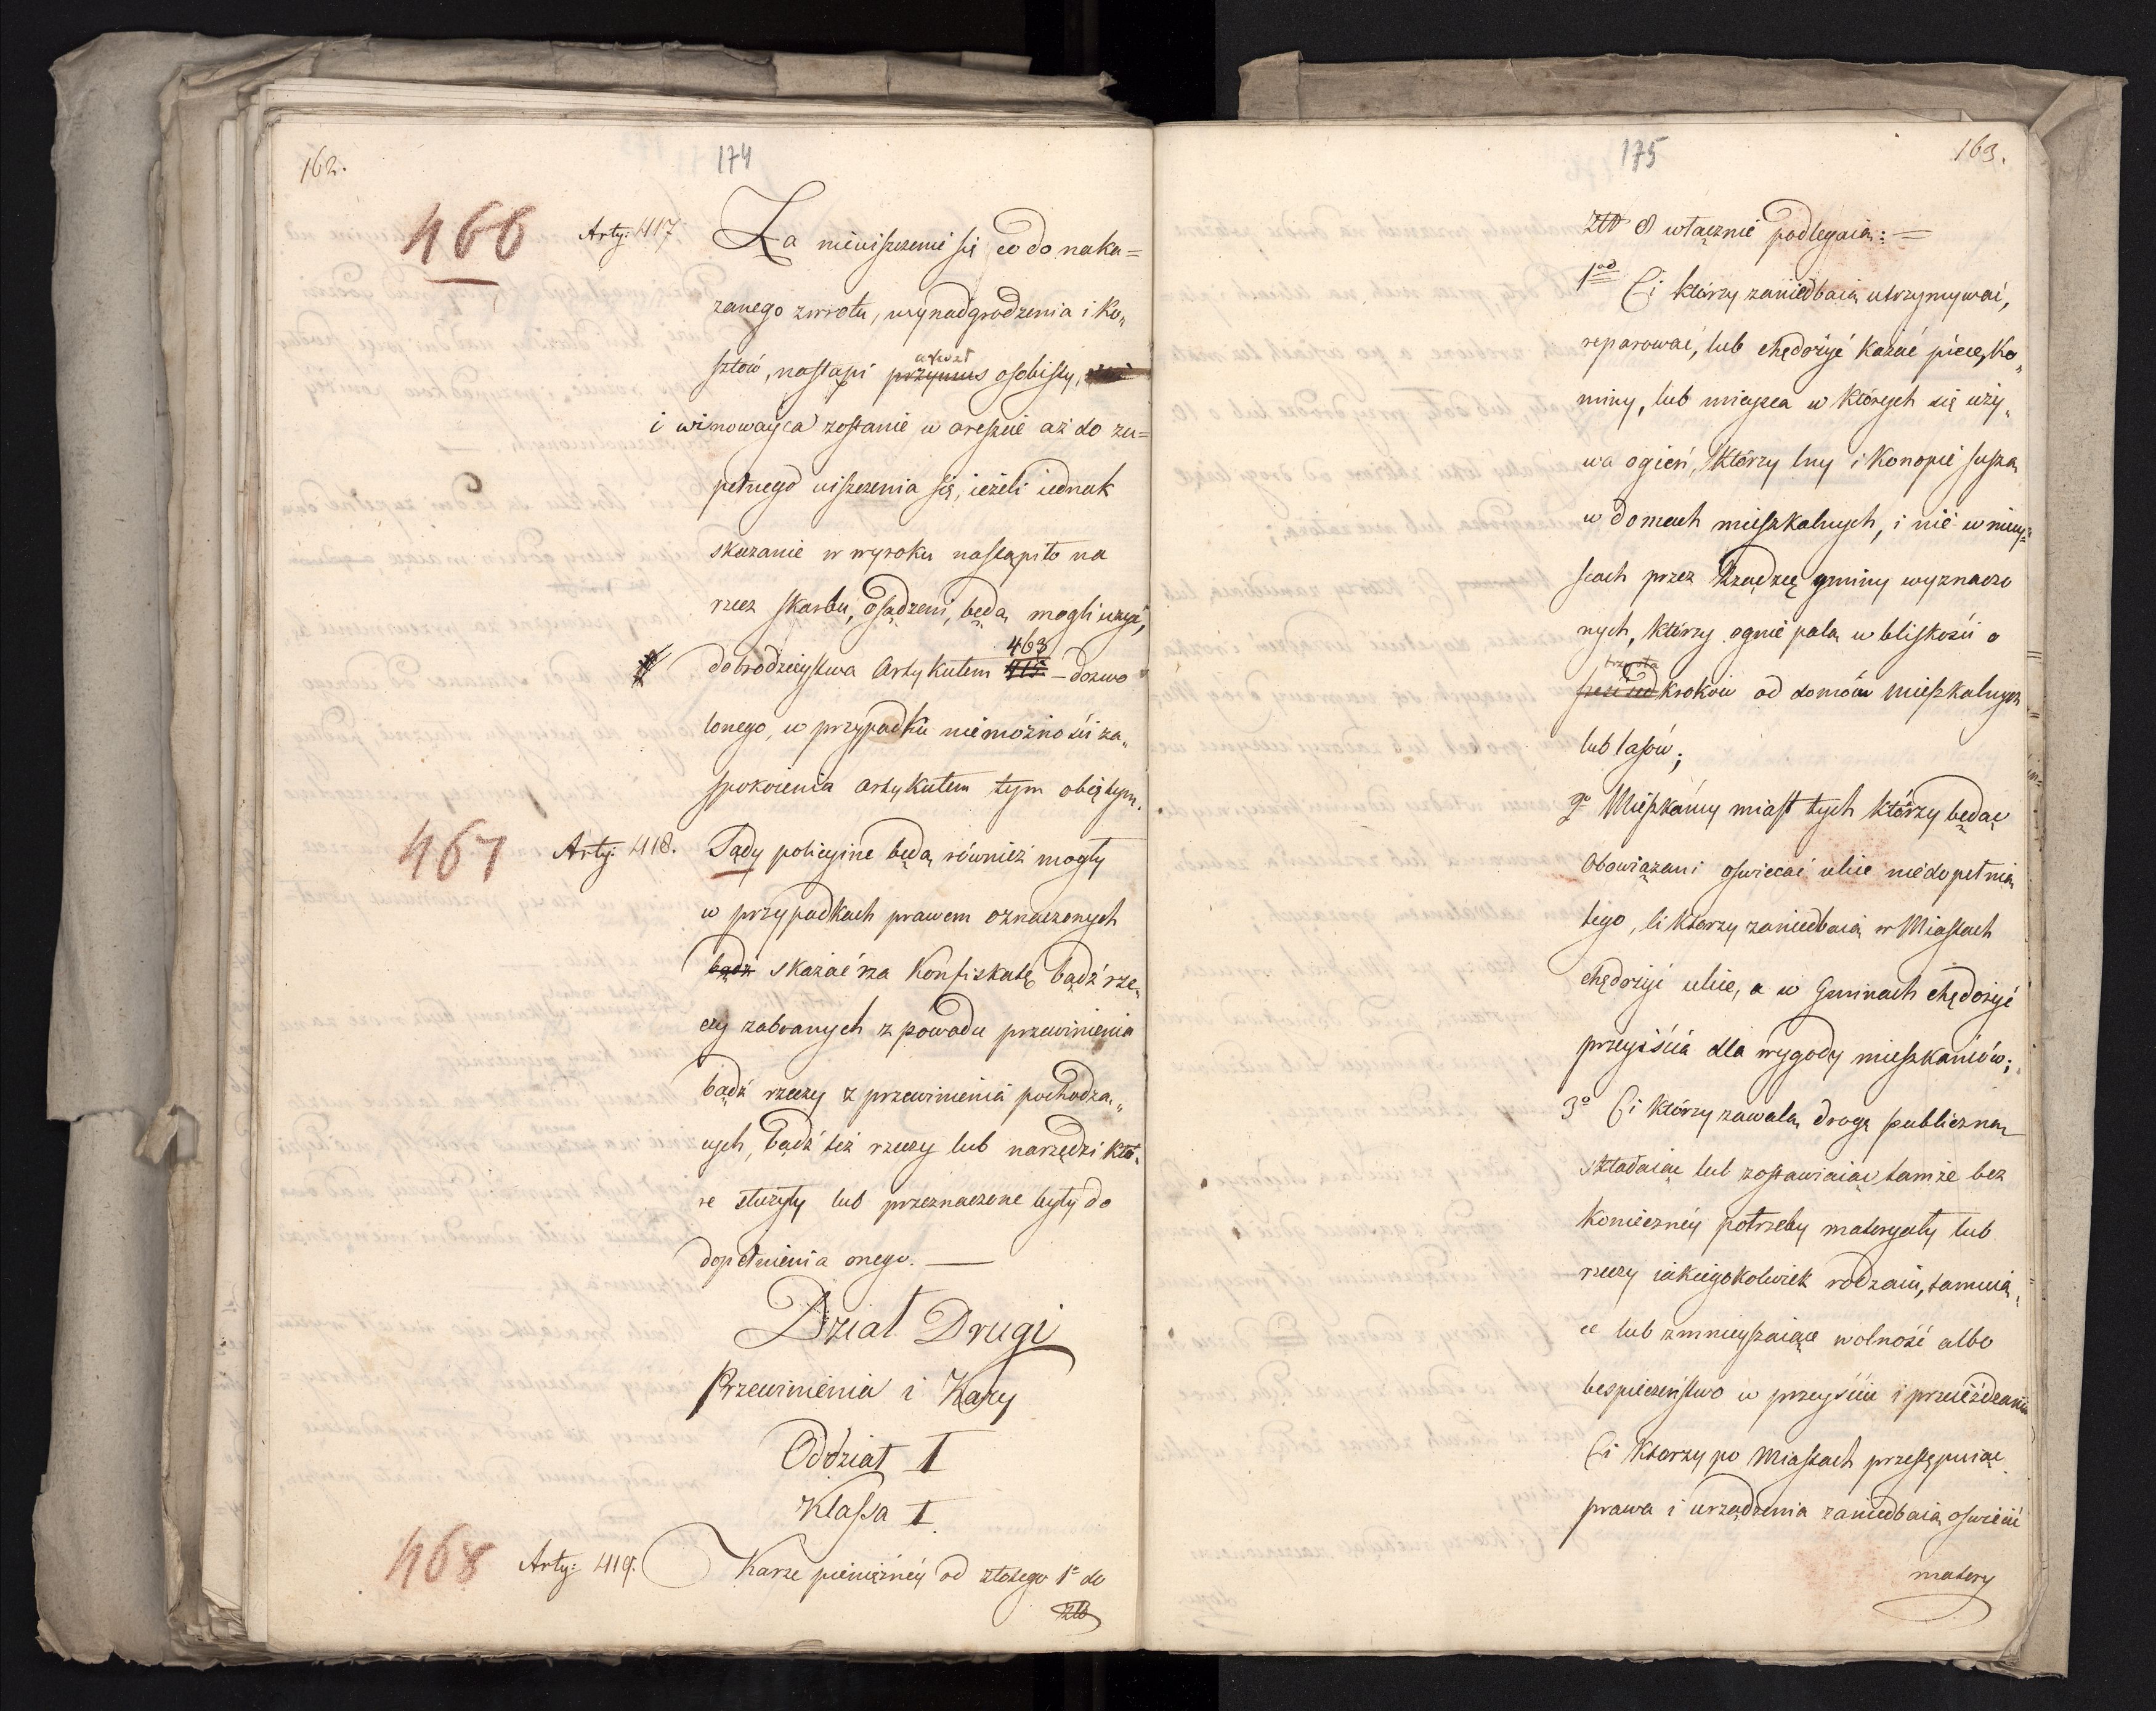 162.
174
466
Arty: 417
Za nieuiszczenie się co do naka=
zanego zwrotu, wynadgrodzenia i Ko„
sztów, nastąpi przymus osobisty,
areszt
i winowayca zostanie w areszcie aż do zu=
pełnego uiszczenia się, ieżeli iednak
skazanie w wyroku nastąpiło na
rzecz skarbu, osądzeni, będą mogli użyć,
463
dobrodzieystwa Artykułem 415 – dozwo
lonego, w przypadku niemożności za„
spokoienia artykułem tym obiętym.
467
Arty: 418.
Sądy policyine będą również mogły
w przypadkach prawem oznaczonych
bądź skazać na Konfiskatę bądź rze„
czy zabranych z powodu przewinienia
bądź rzeczy z przewinienia pochodzą„
cych, bądź też rzeczy lub narzędzi któ„
re służyły lub przeznaczone były do
dopełnienia onego. —
Dział Drugi
Przewinienia i Kary
Oddział I
Klassa I.
468
Arty: 419.
Karze pieniężnéy od złotego 1° do
złło
175
163.
złło 8 włącznie podlegaią: =
1od Ci którzy zaniedbaią utrzymywać,
reparować, lub chędożyć kazać piece, Ko„
miny, lub mieysca w których się uży„
wa ogień, którzy lny i Konopie suszą
w domach mieszkalnych, i nie w miey=
scach przez Rządzcę gminy wyznaczo
nych, którzy ognie palą w bliskości o
trzysta
sześćset kroków od domów mieszkalnych
lub lasów;
2° Mieszkańcy miast tych którzy będąc
obowiązani oswiecać ulice niedopełnią
tego, ci ktorzy zaniedbaią w Miastach
chędożyć ulice, a w Gminach chędożyć
przeyścia dla wygody mieszkańców;
3° Ci którzy zawalą drogę publiczną
składaiąc lub zostawiaiąc tamże bez
koniecznéy potrzeby materyały lub
rzeczy iakiegokolwiek rodzaiu, tamuią„
ce lub zmnieyszaiące wolność albo
bespieczeństwo w przeyściu i przeieżdzaniu
Ci ktorzy po Miastach przestępuiąc
prawa i urządzenia zaniedbaią oświecić
matery